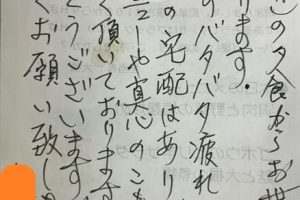 の夕食からお世
ります。
のバタバタ疲れ
の宅配はあり
や真心のこも
く頂いております
うございます
くお願い致しま